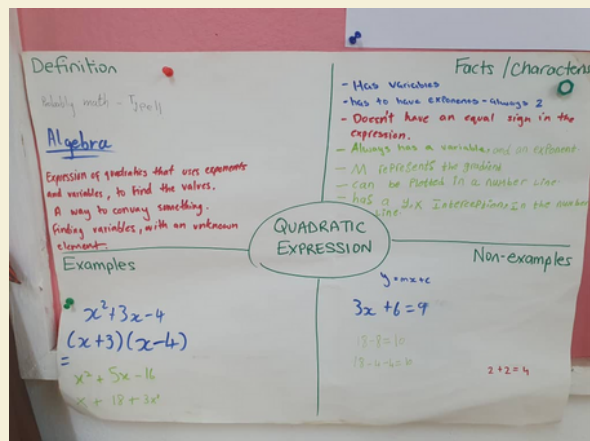 Definition
Probably math - I feel
Algebra
Expression of quadratics that uses exponents
and variables, to find the values.
A way to convay something.
Finding variables, with an unknown
element.
Facts / Characteris
- Has variables
- has to have exponents - always 2
- Doesn't have an equal sign in the
expression.
- Always has a variable, and an exponent.
- M represents the gradient
- can be Plotted in a number line.
- has a y, x Interceptions in the number
Line.
QUADRATIC
EXPRESSION
Examples
x²+3x-4
(x+3)(x-4)
=
x² + 5x - 16
+ 18 + 3x²
Non-examples
y=mx+c
3x +6=9
18-8=10
18-4-4=10
2+2=4